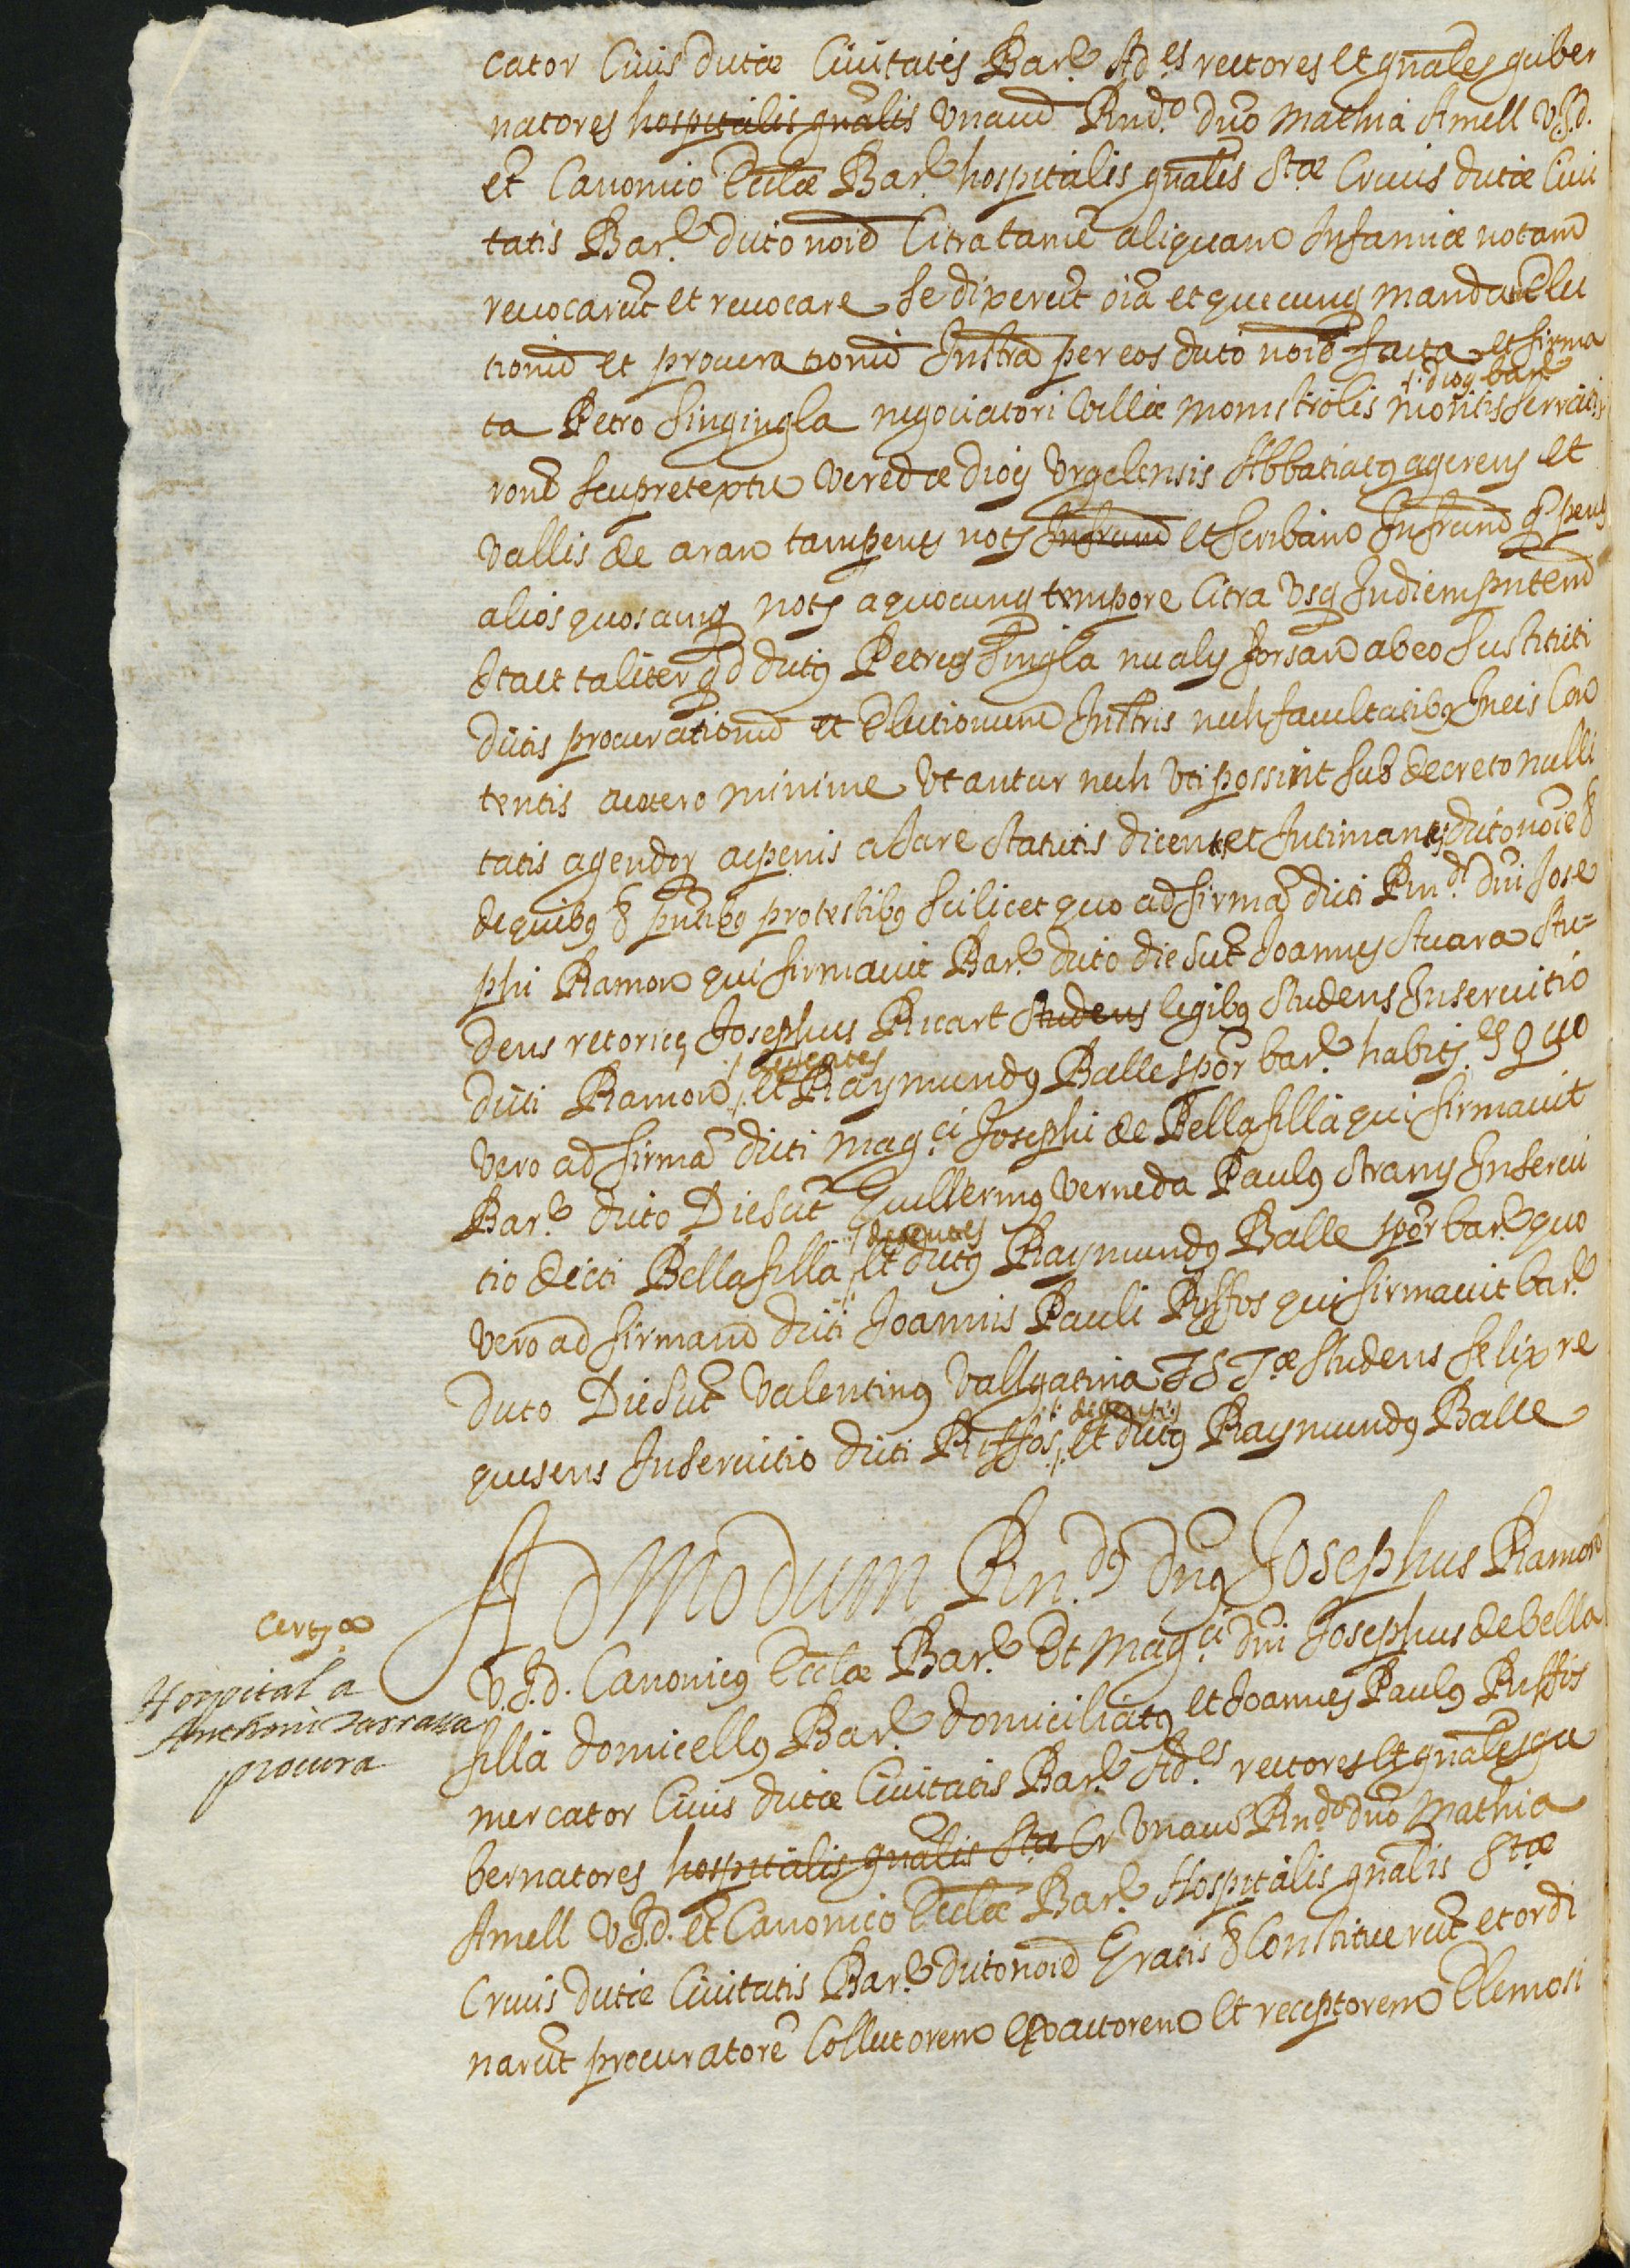 cator Ciuis dictæ Ciuitatis Bar.ᵉ Ad.es rectores et gnales guber
natores hospitalis gnalis vnacũ Rndo. dno Mathia Amell V.J.d.
et Canonico Ecclæ Bar.ᵉ hospitalis gnalis Stæ Crucis dictæ Ciui
tatis Bar.ᵉ dicto noiẽ Citra tamẽ aliquam Infamiæ notam
reuocarũt et reuocare se dixerũt oiã et quecunq mandatũ Elec
tionũ et procurationũ Instra per eos dicto noiẽ facta et firma
ta Petro Singingla negociatori Villæ Monistrolis Montisserrati
diog bar.
ronẽ seu pretextu Veredæ diog Vrgelensis Abbatiaq agerens et
Vallis de aran tam penes nots Infrũm et scribam Infrũm q penes
alios quoscunq nots a quocunq tempore Citra Vsq Indiem pntem
Ita et taliter qd dictq Petrus Singla nec alij forsan ab eo sustituti
dictis procurationũ et Electionum Instris nech facultatibq In eis Con
tentis de cetero minime Vtantur nech Vti possint sub decreto nulli
tatis agendor ac penis a Iure statutis dicentes et Intimantes dicto noiẽ &
de quibq & pntibq protestibq scilicet quo ad firmã dicti Rndi. dni Jose
phi Ramon qui firmauit Bar.ᵉ dicto die sũt Joannes Stuara stu-
dens retorice Josephus Ricart studens legibq studens Inseruitio
degentes
dicti Ramon et Raymundq Balle spor bar.ᵉ habits. Quo
Vero ad firmã dicti Mag.ci Josephi de Bellafilla qui firmauit
Bar.ᵉ dicto Die sũt Guillermq Verneda Paulq Strany Inserui
degentes
tio dicti Bellafilla et dictq Raymundq Balle spor bar.ᵉ quo
Vero ad firmam dicti Joannis Pauli Riffos qui firmauit bar.ᵉ
dicto Die sũt Valentinq Vallgatina studens felix re
degentes
quesens Inseruitio dicti Riffos et dictq Raymundq Balle
Admodum Rn.dq dnq Josephus Ramon
V.J.d. Canonicq Ecclæ Bar.ᵉ Et Mag.ci dni Josephus de bella
filla domicellq Bar.ᵉ domiciliatq et Joannes Paulq Riffos
mercator Ciuis dictæ Ciuitatis Bar.ᵉ Ad.es rectores et gnales gu
bernatores hospitalis gnalis Stæ Cr vnacũ Rndo. dno Mathia
Amell V.J.d. et Canonico Ecclæ Bar.ᵉ Hospitalis gnalis Stæ
Crucis dictæ Ciuitatis Bar.ᵉ dicto noiẽ Gratis & Constituerũt et ordi
narũt procuratorẽ Collectorem Exactorem et receptorem Elemosi
Hospital a
Anthoni
procura